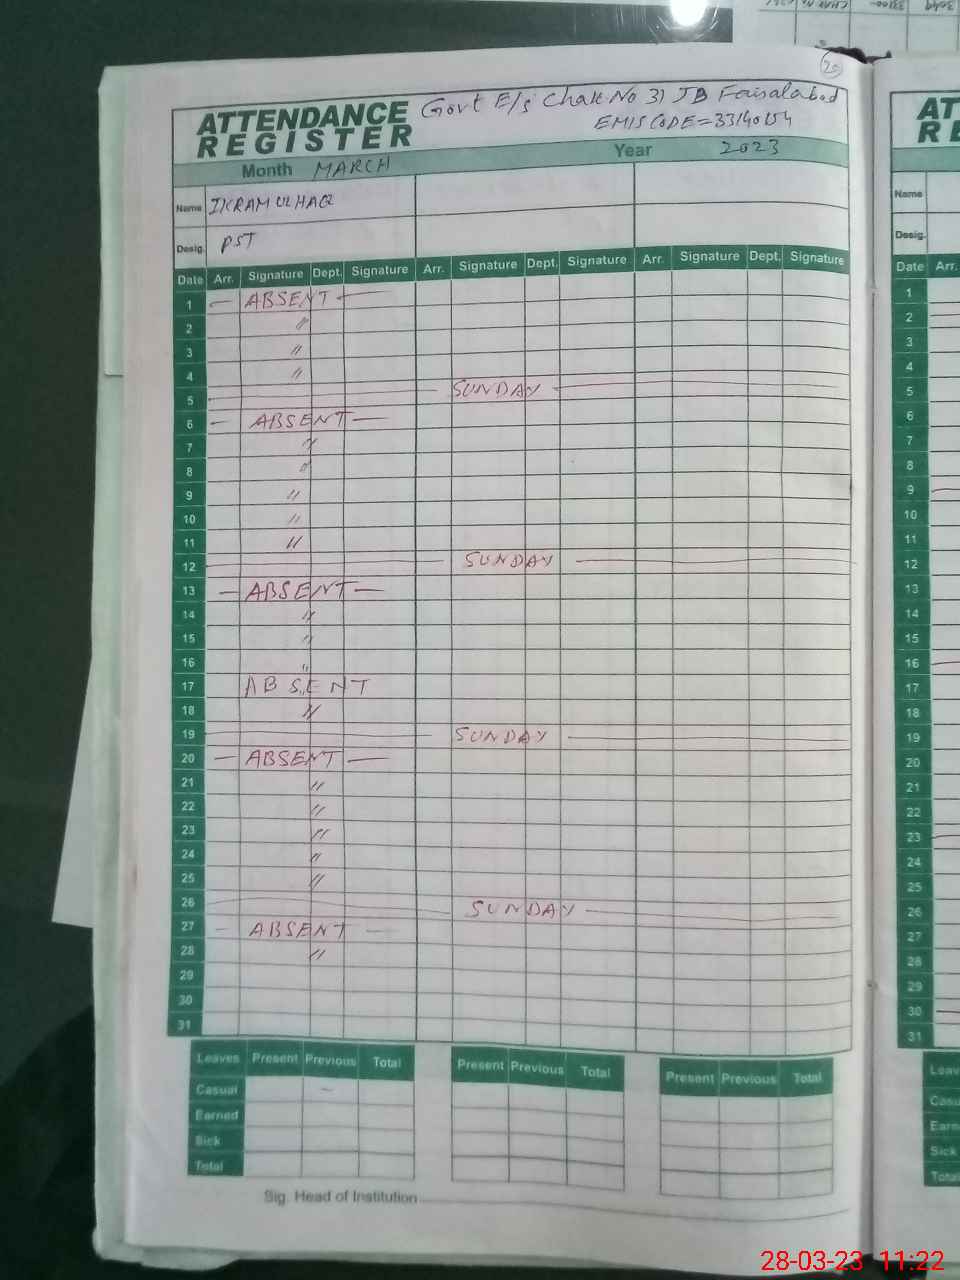 20
ATTENDANCE REGISTER
Govt E/s Chak No 31 JB Faisalabad
EMIS CODE = 33140154
Month MARCH Year 2023
Name IKRAM UL HAQ
Desig. PST
Date Arr. Signature Dept. Signature Arr. Signature Dept. Signature Arr. Signature Dept. Signature
1 — ABSENT —
2 〃
3 〃
4 〃
5 — SUNDAY —
6 — ABSENT —
7 〃
8 〃
9 〃
10 〃
11 〃
12 — SUNDAY —
13 — ABSENT —
14 〃
15 〃
16 〃
17 ABSENT
18 〃
19 — SUNDAY —
20 — ABSENT —
21 〃
22 〃
23 〃
24 〃
25 〃
26 — SUNDAY —
27 — ABSENT —
28 〃
29
30
31
Leaves Present Previous Total Present Previous Total Present Previous Total
Casual —
Earned
Sick
Total
Sig. Head of Institution
AT
RE
Name
Desig.
Date Arr.
1
2
3
4
5
6
7
8
9
10
11
12
13
14
15
16
17
18
19
20
21
22
23
24
25
26
27
28
29
30
31
Leav
Casu
Earn
Sick
Tota
28-03-23 11:22